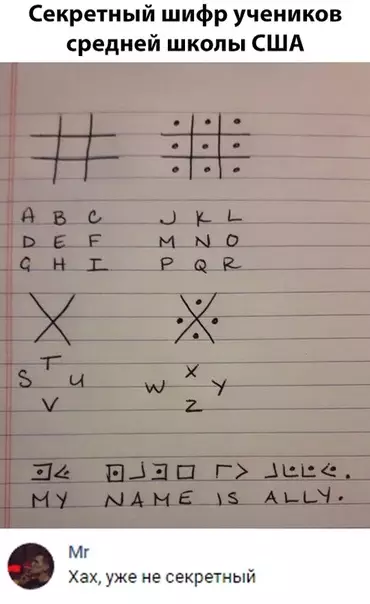 Секретный шифр учеников
средней школы США
A B C J K L
D E F M N O
G H I P Q R
T X
S U W Y
V Z
MY NAME IS ALLY.
Mr
Хах, уже не секретный